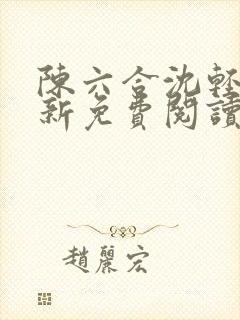 陳六合沈輕
新免費閱讀
趙麗宏